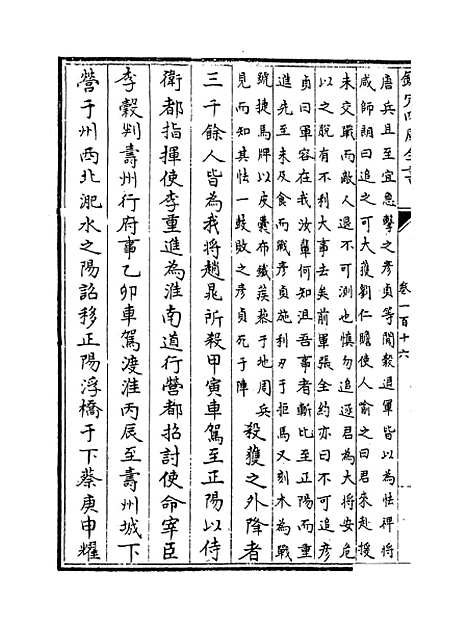 欽定四庫全書
卷一百十六
唐兵且至宜急擊之彥貞等聞穀退軍皆以為怯裨將
咸師朗曰追之可大獲劉仁贍使人喻之曰君來赴援
未交戰而敵人退不可測也慎勿追逐君為大將安危
以之脫有不利大事去矣前軍張全約亦曰不可追彥
貞曰軍容在我汝輩何知沮吾事者斬比至正陽而重
進先至未及食而戰彥貞施利刃于拒馬又刻木為戰
號捷馬牌以皮囊布鐵蒺藜于地周兵
見而知其怯一鼓敗之彥貞死于陣
殺獲之外降者
三千餘人皆為我將趙晁所殺甲寅車駕至正陽以侍
衛都指揮使李重進為淮南道行營都招討使命宰臣
李穀判壽州行府事乙卯車駕渡淮丙辰至壽州城下
營于州西北淝水之陽詔移正陽浮橋于下蔡庚申耀